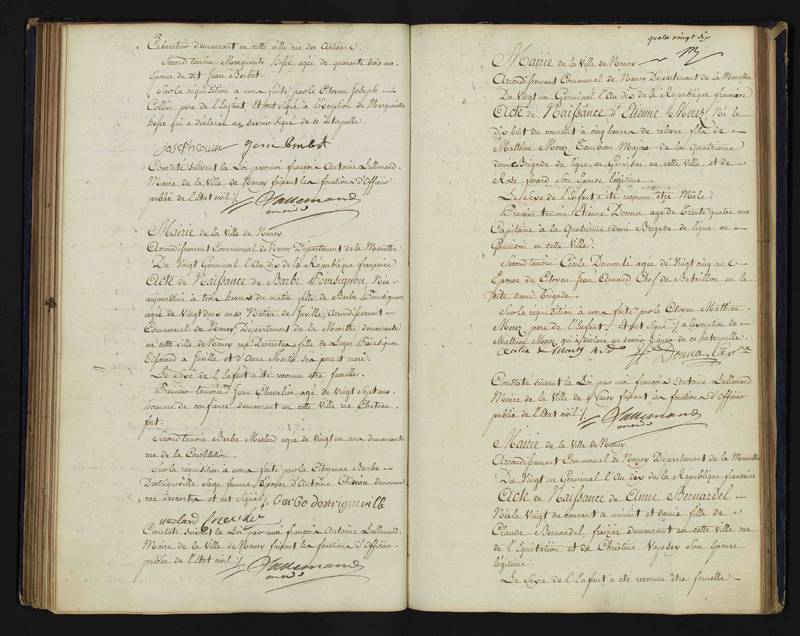 Cabaretier demeurant en cette ville rue des Artisans.
Second témoin Marguerite Hesse agée de quarante trois ans.
Epouse du dit Jean Berbet.
Sur la réquisition à nous faite par le Citoyen Joseph
Collin pere de l'Enfant. Et ont signé à l'exception de Marguerite
hesse qui a déclaré ne savoir signé de ce interpellé.
Joseph Colin
Constaté suivant la Loi par moi françois Antoine Lallemand.
Maire de la Ville de Nancy faisant les fonctions d'Officier
public de l'Etat civil
Lallemand
Mairie de la Ville de Nancy
Arrondissement Communal de Nancy Département de la Meurthe.
Du Vingt Germinal l'An dix de la République françoise
Acte de Naissance de Barbe Poinsignon Née
aujourdhui à trois heures du matin fille de Barbe Poinsignon
agée de Vingt deux ans Native de Juville Arrondissement
Communal de Nancy Département de la Meurthe demeurante
en cette ville de Nancy rue Descartes fille de Leger Poinsignon
à Juville et d'Anne Martin ses pere et mere.
Le Sexe de l'Enfant a été reconnu être femelle.
Premier témoin Jean Chevalier agé de Vingt Sept ans.
homme de confiance demeurant en cette Ville rue Chateau
fort.
Second témoin Barbe Meslard agée de Vingt un ans demeurante
rue de la Constitution.
Sur la réquisition à nous faite par la Citoyenne Barbe
Sage femme, Epouse d'Antoine Thirion demeurant
rue Descartes et ont signé
meslard Chevalier
Constaté suivant la Loi par moi françois Antoine Lallemand.
Maire de la Ville de Nancy faisant les fonctions d'Officier
public de l'Etat civil
Lallemand
quatre vingt dix
Mairie de la Ville de Nancy
Arrondissement Communal de Nancy Département de la Meurthe
Du Vingt un Germinal l'An dix de la République françoise
Acte de Naissance d'Etienne Morez Né le
dix huit du courant à cinq heures de relevée fils de
Matthieu Morez Tambour Major de la Quatrieme
demi Brigade de ligne en Garnison en cette ville et de
Rose son Epouse légitime.
Le Sexe de l'Enfant a été reconnu être Mâle.
Premier témoin Etienne Donna agé de Trente quatre ans
Capitaine à la Quatrieme demi Brigade de ligne en
Garnison en cette Ville.
Second témoin Cécile agée de Vingt cinq ans
Epouse du Citoyen Jean Arnaud Chef de Bataillon en la
dite demi Brigade.
Sur la réquisition à nous faite par le Citoyen Matthieu
Morez pere de l'Enfant. Et ont signé à l'exception de
Matthieu Morez qui a déclaré ne savoir signer de ce interpellé.
Donna
Constaté suivant la Loi par moi françois Antoine Lallemand
Maire de la Ville de Nancy faisant les fonctions d'Officier
public de l'Etat civil
Lallemand
Mairie de la Ville de Nancy.
Arrondissement Communal de Nancy Département de la Meurthe
Du Vingt un Germinal l'An dix de la République françoise
Acte de Naissance de Anne Bernardel
Née le Vingt du courant à minuit et demie fille de
Claude Bernardel demeurant en cette ville rue
de l'Equitation et de Christine son Epouse
légitime.
Le Sexe de l'Enfant a été reconnu être femelle